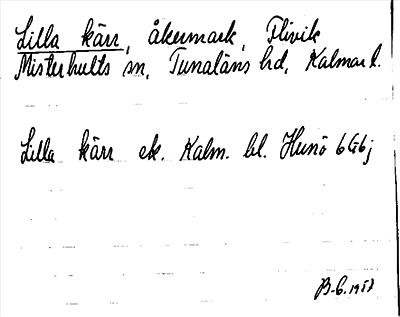 Lilla kärr, åkermark, Flivik
Misterhults sn, Tunaläns hd, Kalmar l.
Lilla kärr ek. Kalm. bl. Hunö 6G6j
B.C. 1951